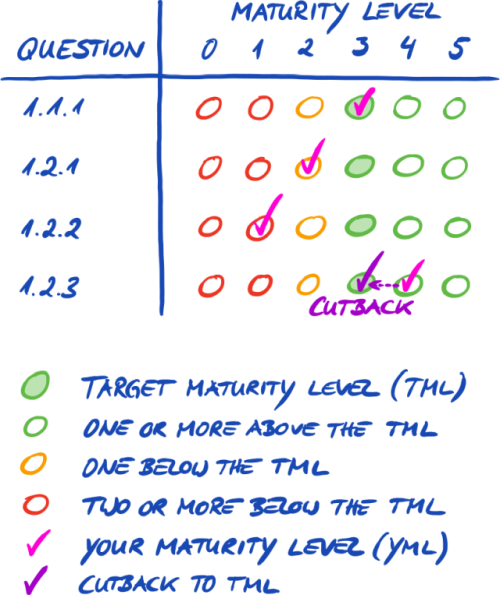 MATURITY LEVEL
QUESTION 0 1 2 3 4 5
1.1.1
1.2.1
1.2.2
1.2.3
CUTBACK
TARGET MATURITY LEVEL (TML)
ONE OR MORE ABOVE THE TML
ONE BELOW THE TML
TWO OR MORE BELOW THE TML
YOUR MATURITY LEVEL (YML)
CUTBACK TO TML